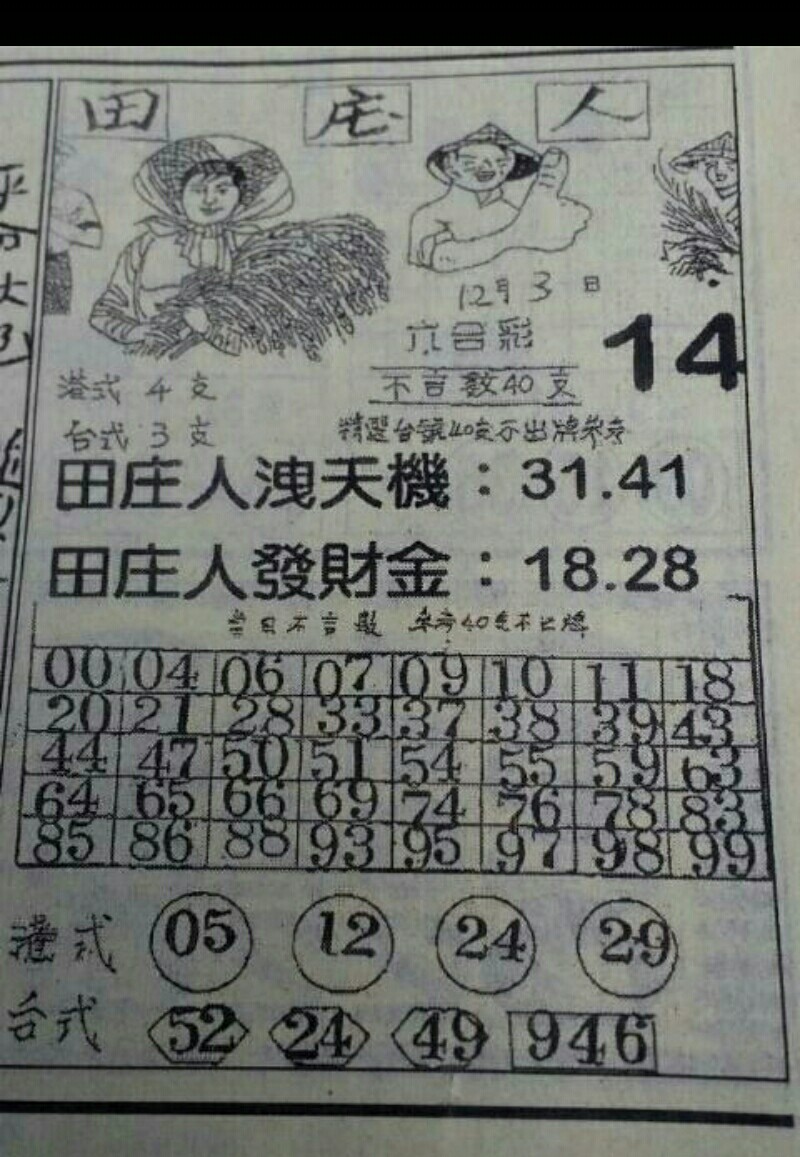 田 庄 人
12月3日
六合彩
14
港式 4支
不言數40支
台式 3支
精選台號40支不出牌參考
田庄人洩天機：31.41
田庄人發財金：18.28
當日不言數 參考40支不出牌
00 04 06 07 09 10 11 18
20 21 28 33 37 38 39 43
44 47 50 51 54 55 59 63
64 65 66 69 74 76 78 83
85 86 88 93 95 97 98 99
港式 05 12 24 29
台式 52 24 49 946